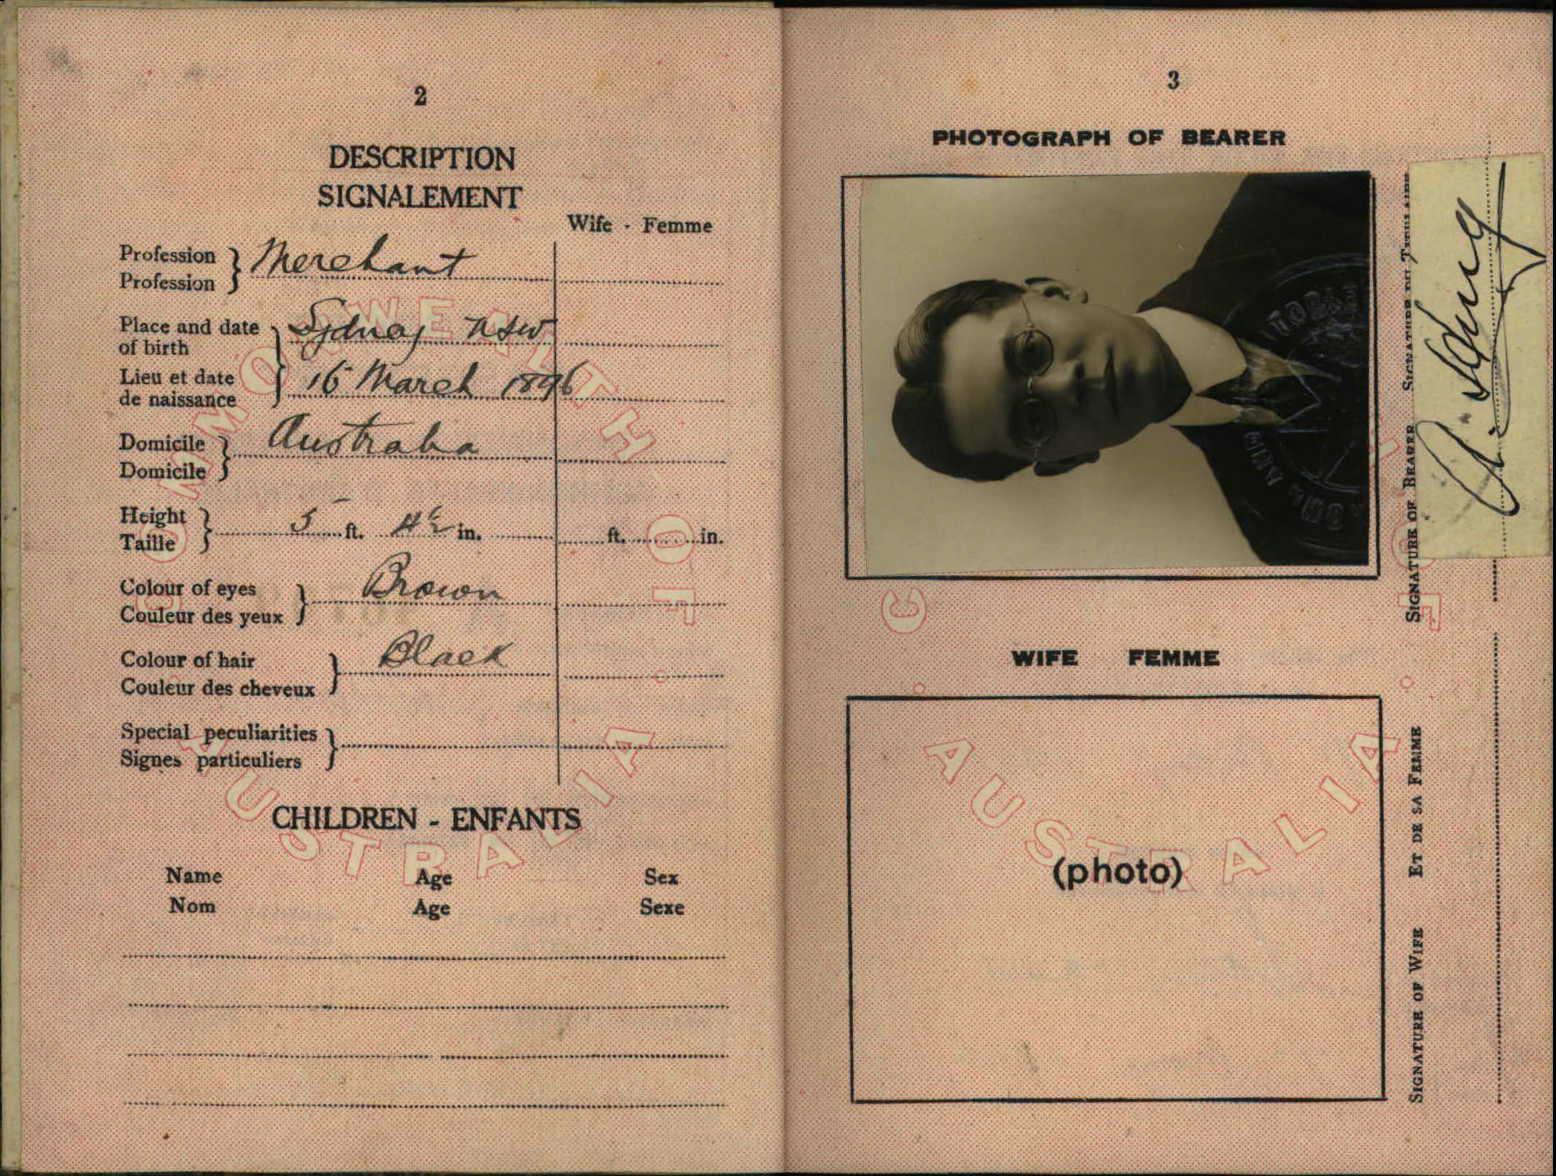 2
DESCRIPTION
SIGNALEMENT
Wife - Femme
Profession
Profession
Merchant
Place and date
of birth
Lieu et date
de naissance
Sydney NSW
16 March 1896
Domicile
Domicile
Australia
Height
Taille
5 ft. 4½ in.
ft. in.
Colour of eyes
Couleur des yeux
Brown
Colour of hair
Couleur des cheveux
Black
Special peculiarities
Signes particuliers
CHILDREN - ENFANTS
Name Age Sex
Nom Age Sexe
COMMONWEALTH OF
AUSTRALIA
3
PHOTOGRAPH OF BEARER
SIGNATURE OF BEARER SIGNATURE DU TITULAIRE
WIFE FEMME
(photo)
SIGNATURE OF WIFE ET DE SA FEMME
AUSTRALIA